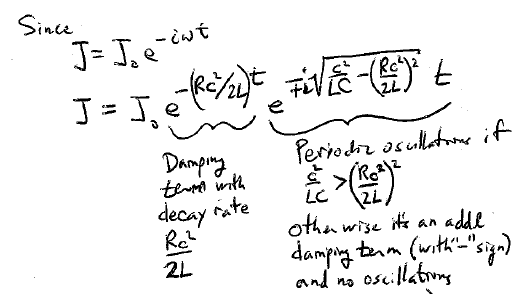 Since
J = J₀ e^{-iωt}
J = J₀ e^{-(Rc²/2L)t} e^{∓i√(c²/LC - (Rc²/2L)²) t}
Damping
term with
decay rate
Rc²/2L
Periodic oscillations if
c²/LC > (Rc²/2L)²
otherwise it's an addl
damping term (with "-" sign)
and no oscillations